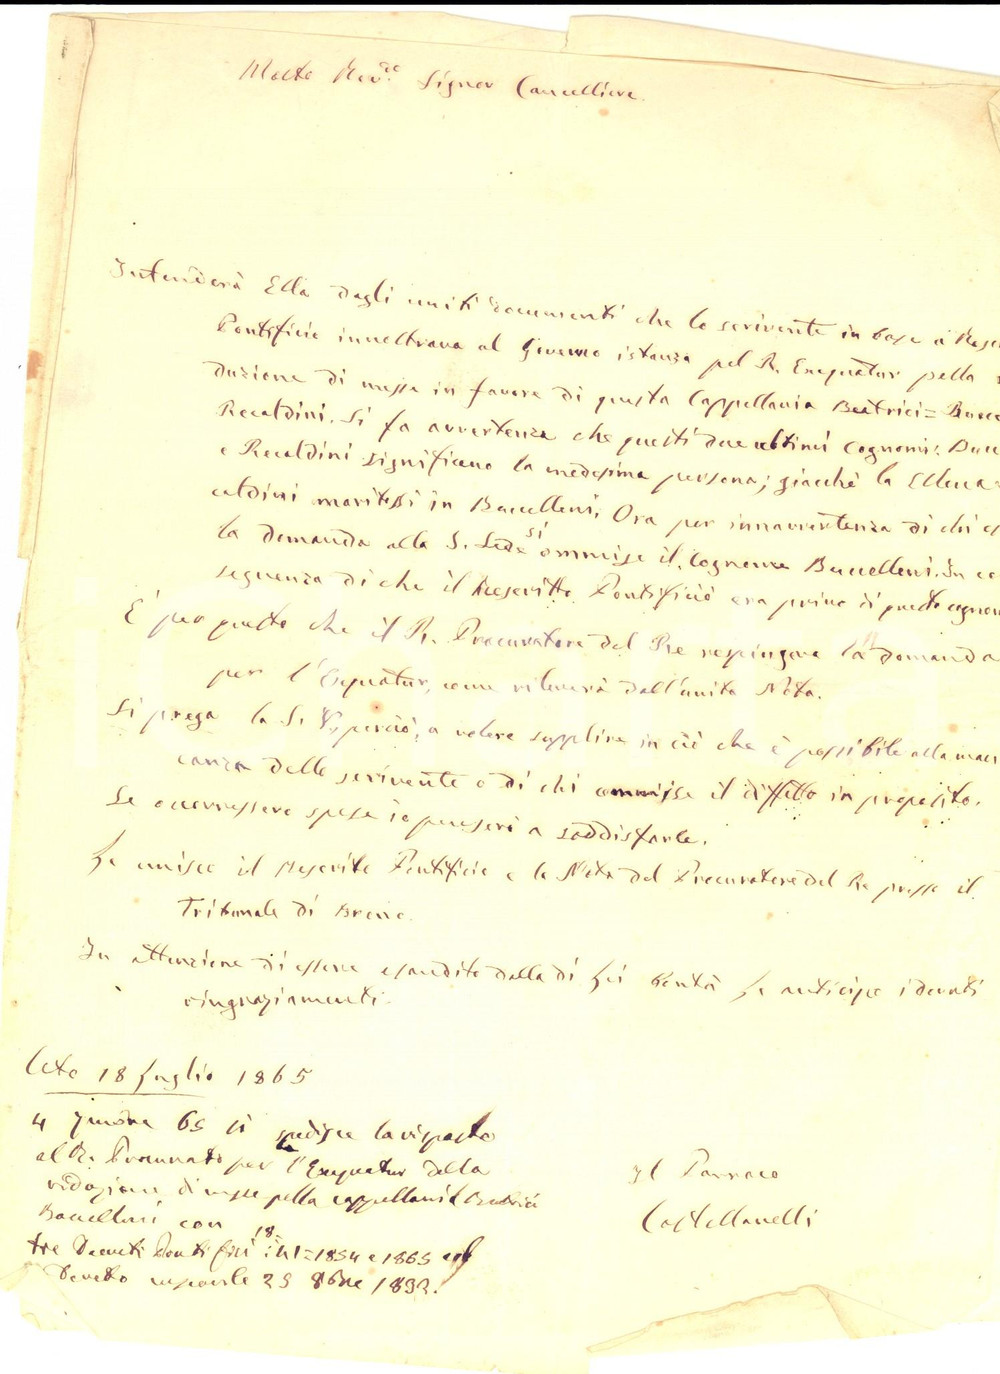 Molto Rev.do Signor Cancelliere
Intenderà Ella dagli uniti documenti che lo scrivente in base a Resc
Pontificio innoltrava al Governo istanza pel R. Exequatur pella
duzione di messe in favore di questa Cappellania Beatrici=Bucce
Recaldini. Si fa avvertenza che questi due ultimi cognomi: Buc
e Recaldini significano la medesima persona; giacchè la Ellena
caldini maritossi in Buccelleni. Ora per innavvertenza di chi es
la domanda alla S. Sede si ommise il cognome Buccelleni. In co
seguenza di che il Rescritto Pontificio era privo di questo cognom
E per questo che il R. Procuratore del Re respingeva la domanda
per l'Exequatur, come rileverà dall'unita Nota.
Si prega la S. V, perciò, a voler supplire in ciò che è possibile alla man
canza dello scrivente o di chi commise il diffetto in proposito.
Se occorressero spese io penserò a soddisfarle.
Le unisco il Rescritto Pontificio e la Nota del Procuratore del Re presso il
Tribunale di Breno.
In attenzione di essere esaudito dalla di Lei bontà Le anticipo i dovuti
ringraziamenti.
Ceto 18 Luglio 1865
4 65 si spedisce la risposta
al R. per l'Exequatur della
riduzione di messe pella cappellania Beatrici
Buccelleni con
tre Decreti Pontifici 18 1854 e 1865 col
Decreto 25 8bre 1832.
Il Parroco
Castellanelli